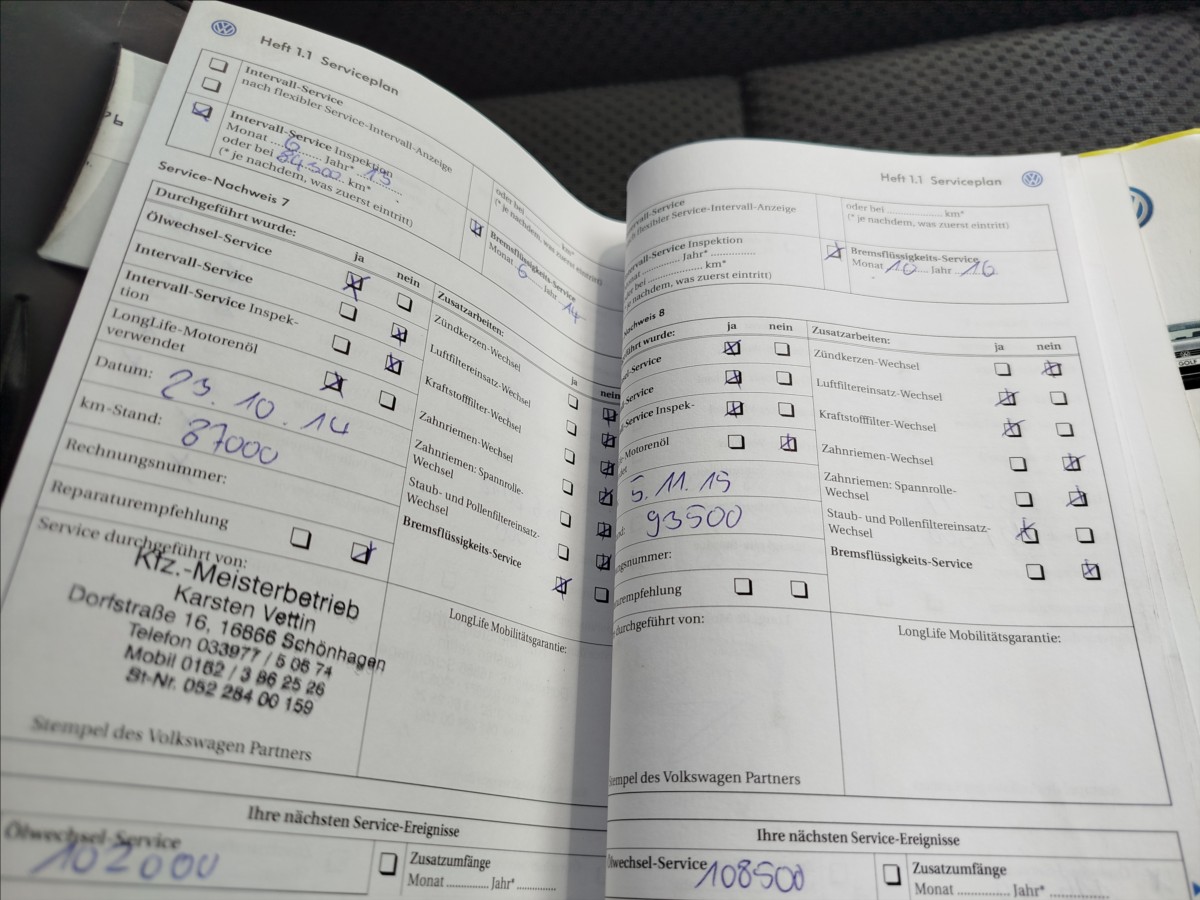 Heft 1.1 Serviceplan
Intervall-Service
nach flexibler Service-Intervall-Anzeige
Intervall-Service Inspektion
Monat 6 Jahr* 15
oder bei 84500 km*
(* je nachdem, was zuerst eintritt)
oder bei km*
(* je nachdem, was zuerst eintritt)
Bremsflüssigkeits-Service
Monat 6 Jahr 14
Service-Nachweis 7
Durchgeführt wurde:
ja nein
Ölwechsel-Service
Intervall-Service
Intervall-Service Inspek-
tion
LongLife-Motorenöl
verwendet
Datum: 23.10.14
km-Stand: 87000
Rechnungsnummer:
Reparaturempfehlung
Service durchgeführt von:
Kfz.-Meisterbetrieb
Karsten Vettin
Dorfstraße 16, 16866 Schönhagen
Telefon 033977 / 5 06 74
Mobil 0162 / 3 86 25 26
St-Nr. 052 284 00 159
Stempel des Volkswagen Partners
Zusatzarbeiten:
ja nein
Zündkerzen-Wechsel
Luftfiltereinsatz-Wechsel
Kraftstofffilter-Wechsel
Zahnriemen-Wechsel
Zahnriemen: Spannrolle-
Wechsel
Staub- und Pollenfiltereinsatz-
Wechsel
Bremsflüssigkeits-Service
LongLife Mobilitätsgarantie:
Ihre nächsten Service-Ereignisse
Ölwechsel-Service
102000
Zusatzumfänge
Monat Jahr*
Heft 1.1 Serviceplan
tervall-Service
ach flexibler Service-Intervall-Anzeige
tervall-Service Inspektion
Jahr*
km*
je nachdem, was zuerst eintritt)
oder bei km*
(* je nachdem, was zuerst eintritt)
Bremsflüssigkeits-Service
Monat 10 Jahr 16
Nachweis 8
führt wurde:
ja nein
-Service
-Service
-Service Inspek-
-Motorenöl
5.11.15
93500
ngsnummer:
urempfehlung
durchgeführt von:
tempel des Volkswagen Partners
Zusatzarbeiten:
ja nein
Zündkerzen-Wechsel
Luftfiltereinsatz-Wechsel
Kraftstofffilter-Wechsel
Zahnriemen-Wechsel
Zahnriemen: Spannrolle-
Wechsel
Staub- und Pollenfiltereinsatz-
Wechsel
Bremsflüssigkeits-Service
LongLife Mobilitätsgarantie:
Ihre nächsten Service-Ereignisse
lwechsel-Service 108500
Zusatzumfänge
Monat Jahr*
GOLF